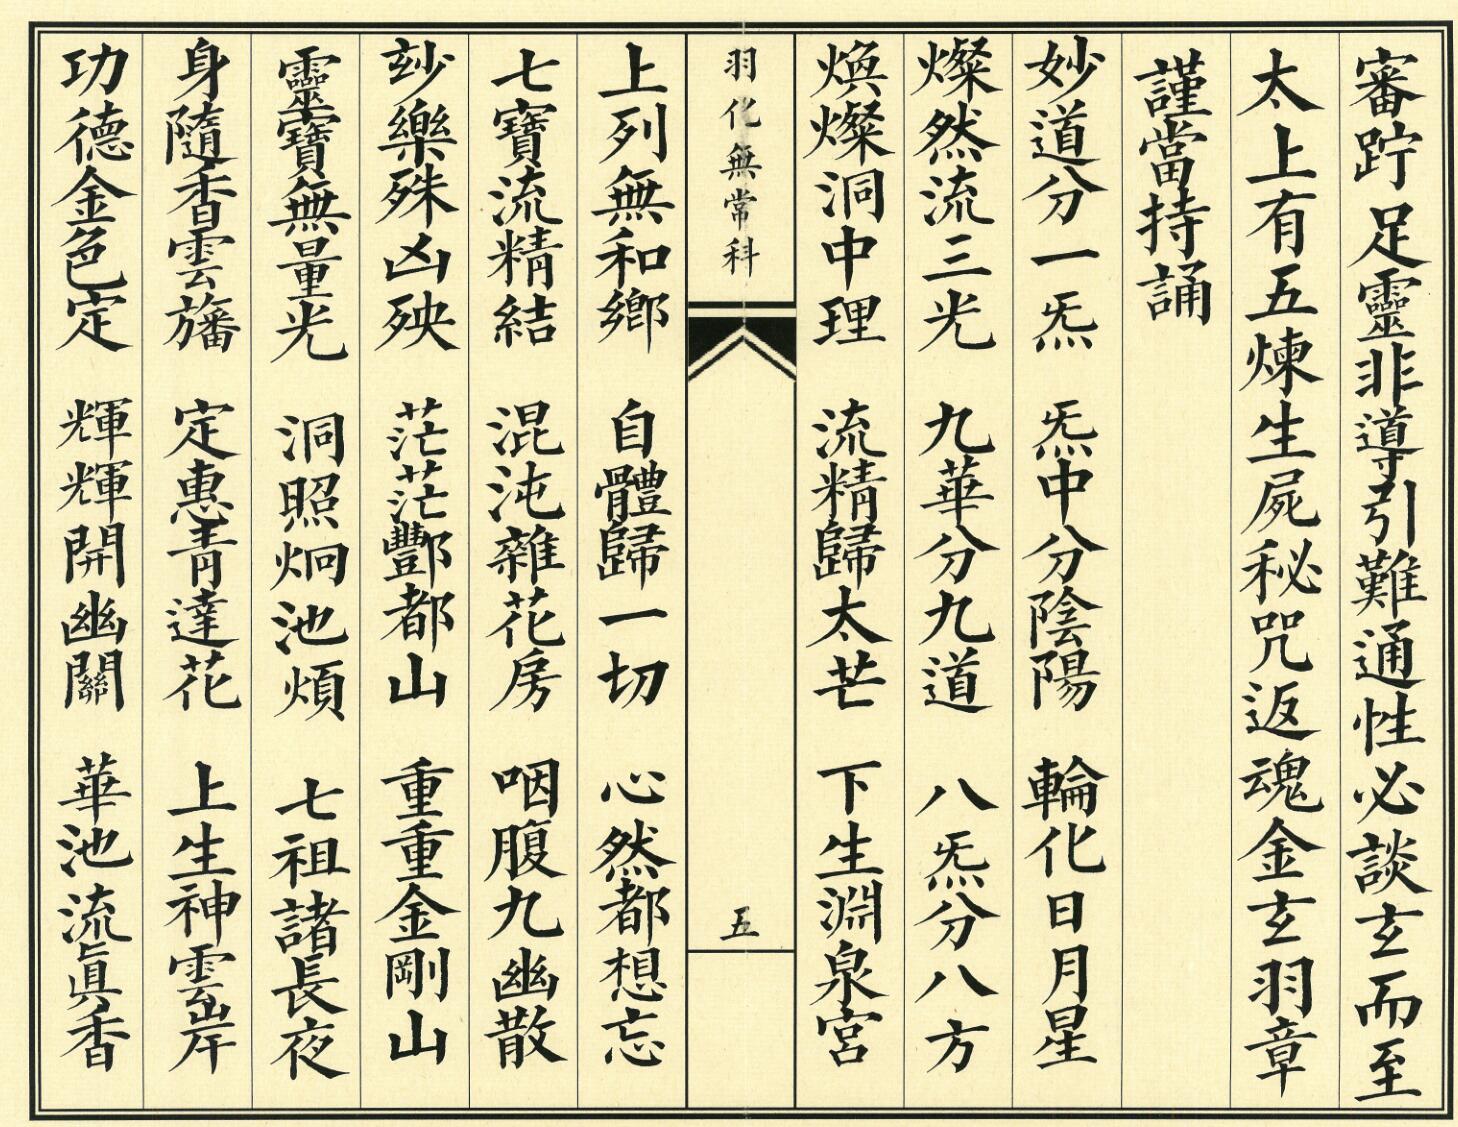 審貯足靈非導引難通性必談玄而至
太上有五煉生屍秘咒返魂金玄羽章
謹當持誦
妙道分一炁 炁中分陰陽 輪化日月星
燦然流三光 九華分九道 八炁分八方
煥燦洞中理 流精歸太芒 下生淵泉宮
羽化無常科 五
上列無和鄉 自體歸一切 心然都想忘
七寶流精結 混沌雜花房 咽腹九幽散
玅樂殊凶殃 茫茫酆都山 重重金剛山
靈寶無量光 洞照炯池煩 七祖諸長夜
身隨香雲旛 定惠青達花 上生神雲岸
功德金色定 輝輝開幽關 華池流眞香